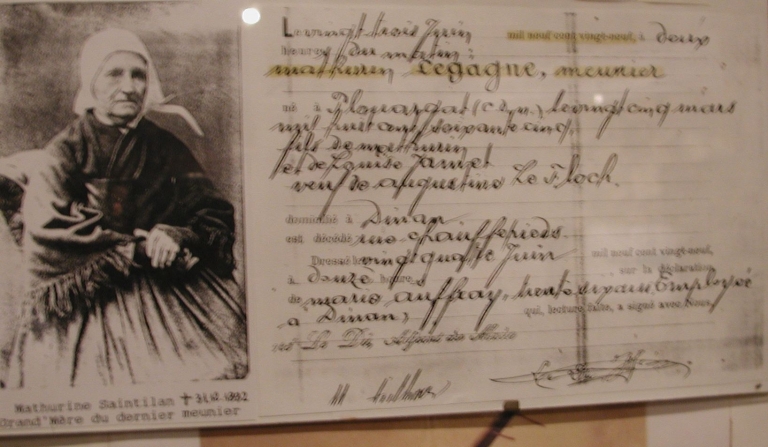 Le vingt-trois Juin mil neuf cent vingt-neuf, à deux
heures du matin:
mathurin Legagne, meunier
né à Plouasgat (C. du N.) le vingt cinq mars
mil huit cent soixante cinq,
fils de mathurin
et de Louise Jamet
veuf de augustine Le Floch.
domicilié à Dinan
est décédé rue chauffepieds.
Dressé le vingt quatre Juin mil neuf cent vingt-neuf,
à douze heures, sur la déclaration
de marie auffray, trente six ans Employée
à Dinan, qui, lecture faite, a signé avec Nous,
Adjoint au Maire
Mathurine Saintilan ✝
Grand'Mère du dernier meunier